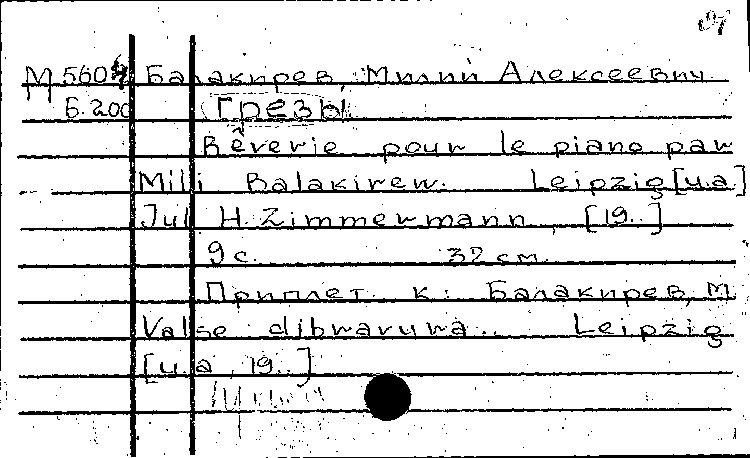 М 5604 Балакирев, Милий Алексеевич
Б.200 Грезы
Rêverie pour le piano par
Mili Balakirew. Leipzig [u.a]
Jul H. Zimmermann, [19..]
9 с. 32 см.
Приплет. к: Балакирев, М.
Valse dibravura.. Leipzig
[u.a, 19..]